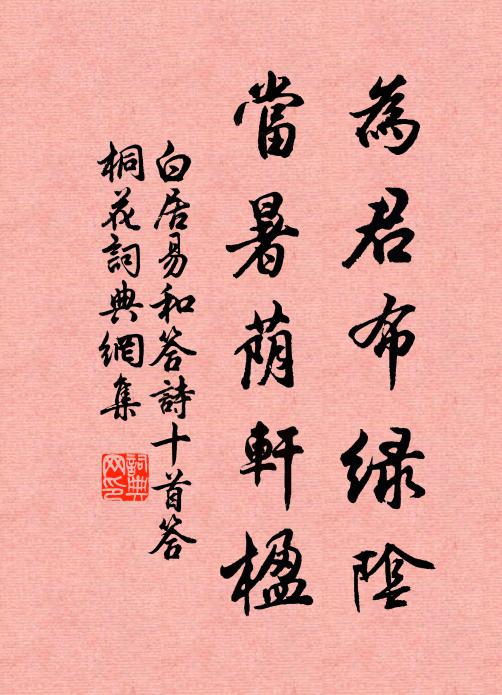 為君布綠陰
當暑蔭軒楹
白居易和答詩十首答
桐花詞典網集
詞典网印